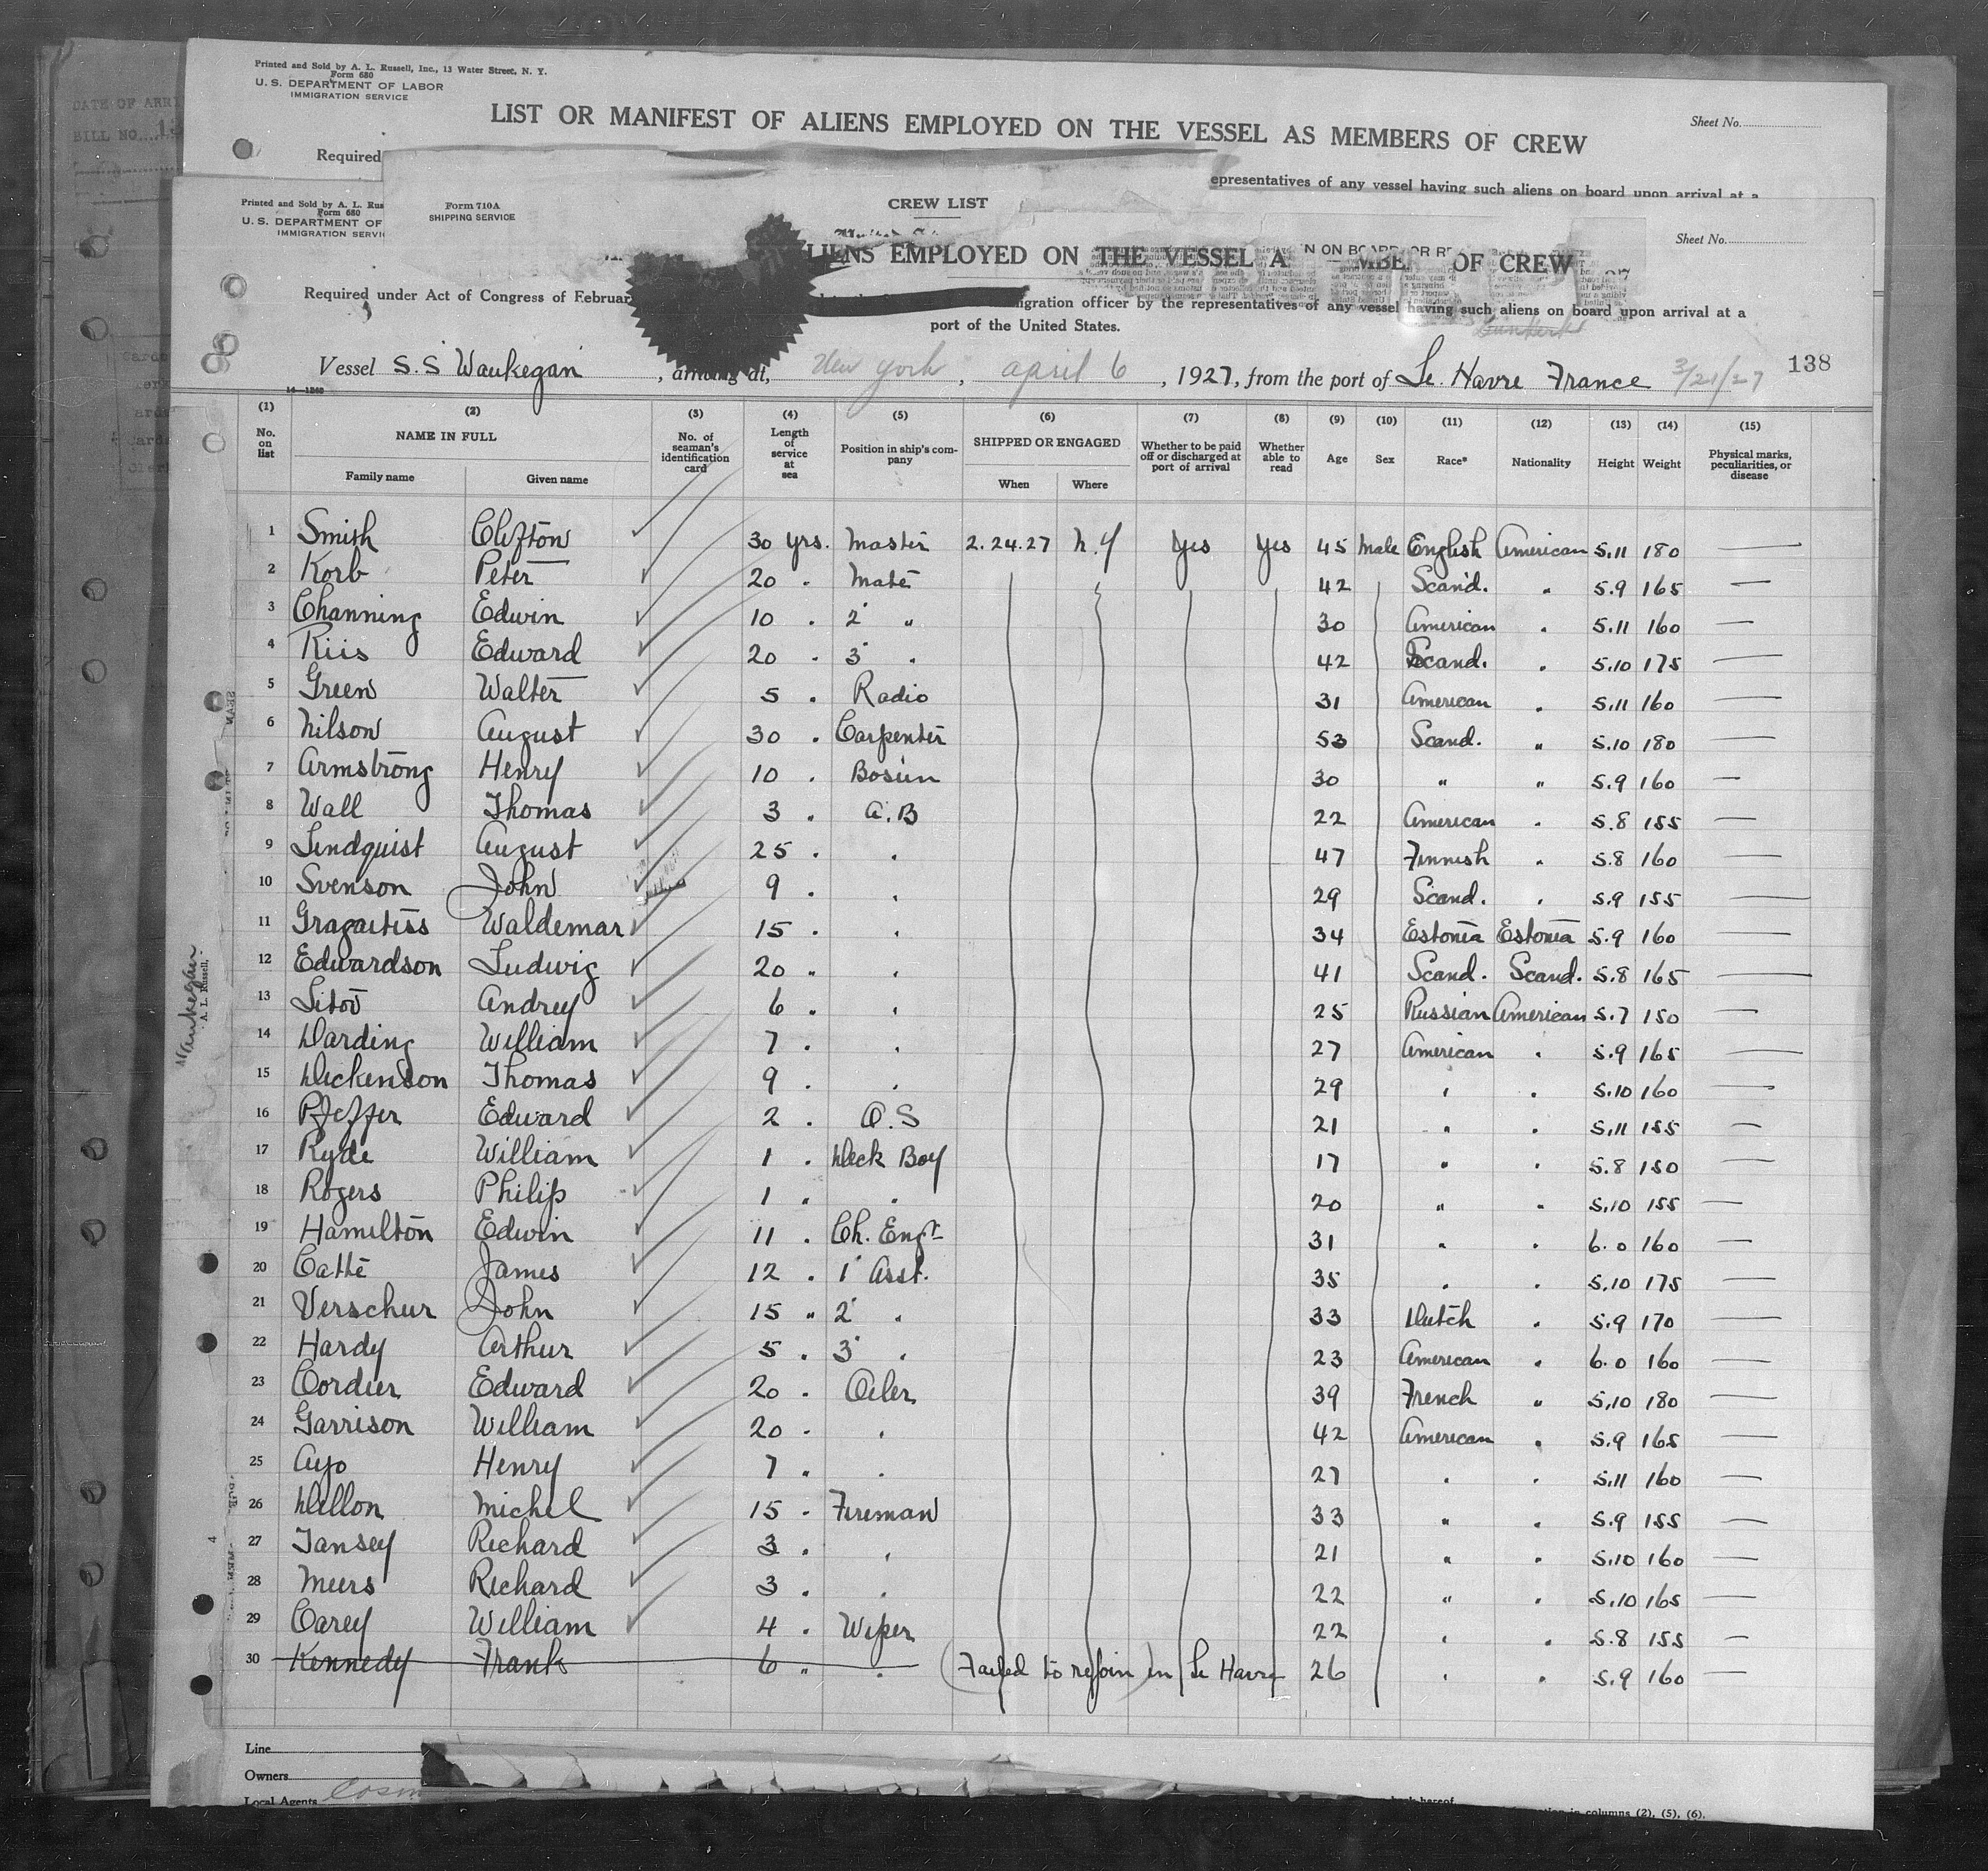 DATE OF ARRI
BILL NO.
Printed and Sold by A. L. Russell, Inc., 13 Water Street, N. Y.
Form 680
U. S. DEPARTMENT OF LABOR
IMMIGRATION SERVICE
LIST OR MANIFEST OF ALIENS EMPLOYED ON THE VESSEL AS MEMBERS OF CREW
Sheet No.
Required
epresentatives of any vessel having such aliens on board upon arrival at a
Printed and Sold by A. L. Rus
Form 680
U. S. DEPARTMENT OF
IMMIGRATION SERVI
Form 710A
SHIPPING SERVICE
CREW LIST
Sheet No.
LIENS EMPLOYED ON THE VESSEL A MBE OF CREW
Required under Act of Congress of Februar migration officer by the representatives of any vessel having such aliens on board upon arrival at a
port of the United States.
Vessel S.S Waukegan, arriving at, New York, April 6, 1927, from the port of Le Havre France 3/21/27 138
(1) (2) (3) (4) (5) (6) (7) (8) (9) (10) (11) (12) (13) (14) (15)
No. on list NAME IN FULL Family name Given name No. of seaman's identification card Length of service at sea Position in ship's company SHIPPED OR ENGAGED When Where Whether to be paid off or discharged at port of arrival Whether able to read Age Sex Race* Nationality Height Weight Physical marks, peculiarities, or disease
1 Smith Clifton 30 yrs. Master 2.24.27 N.Y Yes Yes 45 Male English American 5.11 180 —
2 Korb Peter 20 . Mate 42 Scand. " 5.9 165 —
3 Channing Edwin 10 . 2 " 30 American . 5.11 160 —
4 Riis Edward 20 . 3 . 42 Scand. . 5.10 175 —
5 Green Walter 5 . Radio 31 American . 5.11 160 —
6 Nilson August 30 . Carpenter 53 Scand. " 5.10 180 —
7 Armstrong Henry 10 . Bosun 30 " " 5.9 160 —
8 Wall Thomas 3 . A.B 22 American . 5.8 155 —
9 Lindquist August 25 . . 47 Finnish . 5.8 160 —
10 Svenson John 9 . . 29 Scand. . 5.9 155 —
11 Gragaitiss Waldemar 15 . . 34 Estonia Estonia 5.9 160 —
12 Edwardson Ludwig 20 " . 41 Scand. Scand. 5.8 165 —
13 Sitov Andrey 6 . . 25 Russian American 5.7 150 —
14 Darding William 7 . . 27 American . 5.9 165 —
15 Dickenson Thomas 9 . . 29 . . 5.10 160 —
16 Pfeffer Edward 2 . O.S 21 " . 5.11 155 —
17 Ryde William 1 . Deck Boy 17 " . 5.8 150 —
18 Rogers Philip 1 . . 20 " . 5.10 155 —
19 Hamilton Edwin 11 . Ch. Engr 31 . . 6.0 160 —
20 Catte James 12 . 1 Asst. 35 . . 5.10 175 —
21 Verschur John 15 " 2 . 33 Dutch . 5.9 170 —
22 Hardy Arthur 5 . 3 . 23 American . 6.0 160 —
23 Cordier Edward 20 . Oiler 39 French " 5.10 180 —
24 Garrison William 20 . . 42 American . 5.9 165 —
25 Ayo Henry 7 . . 27 . . 5.11 160 —
26 Dillon Michel 15 . Fireman 33 " . 5.9 155 —
27 Tansey Richard 3 . . 21 " . 5.10 160 —
28 Meers Richard 3 . . 22 " . 5.10 165 —
29 Carey William 4 . Wiper 22 . . 5.8 155 —
30 Kennedy Frank 6 " . (Failed to rejoin) in Le Havre 26 . . 5.9 160 —
Waukegan
A. L. Russell,
Line
Owners
Local Agents Cosm
back hereof
in columns (2), (5), (6).